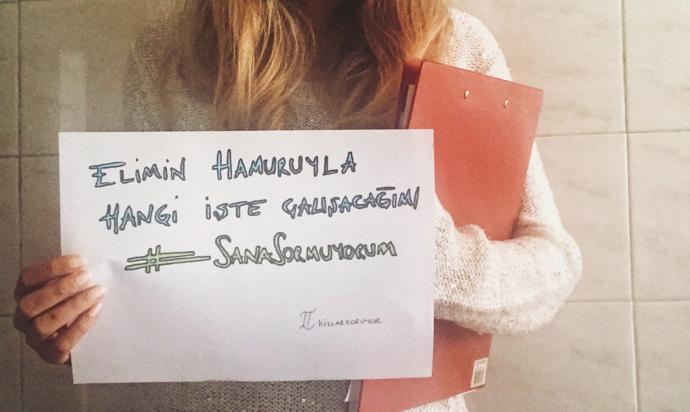 ELİMİN HAMURUYLA
HANGİ İŞTE ÇALIŞACAĞIMI
# SANASORMUYORUM
KIZLARSORUYOR